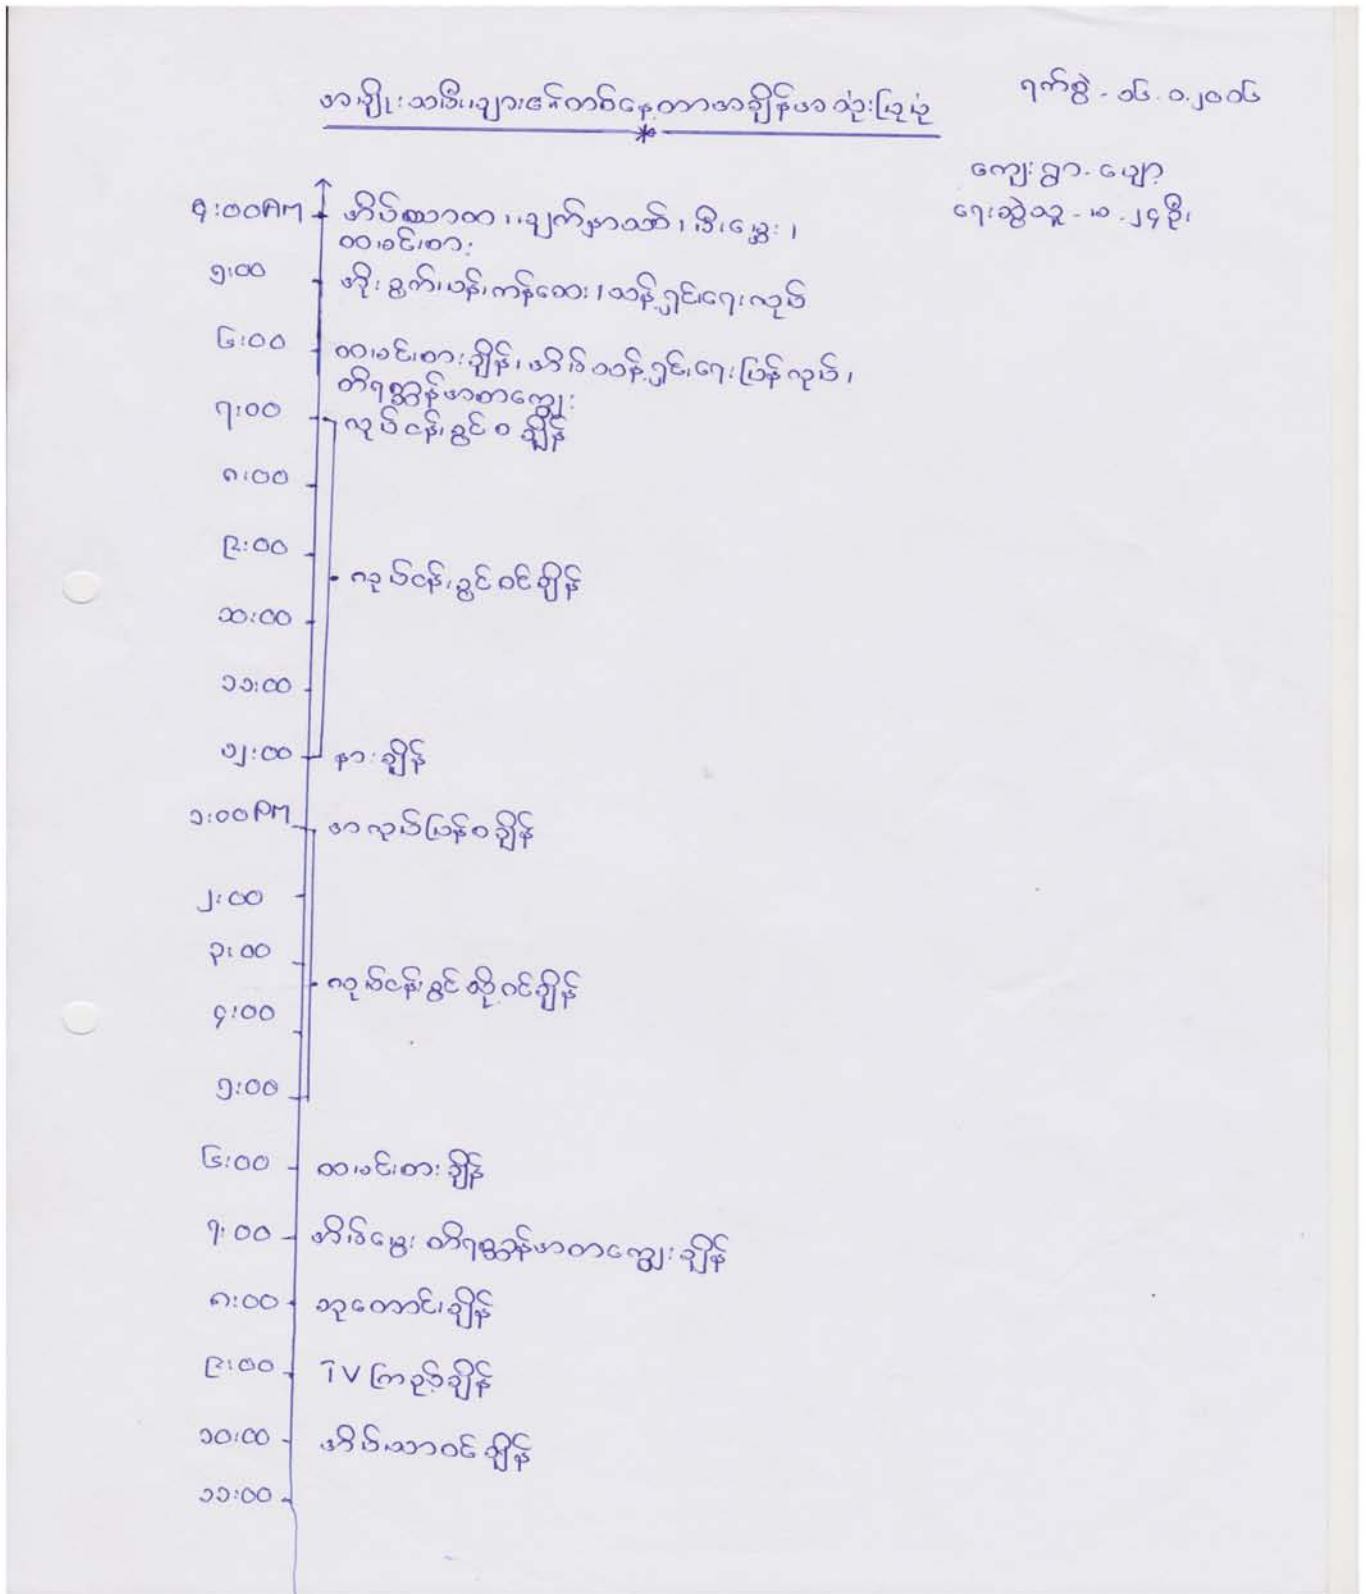 အမျိုးသမီးများ၏တစ်နေ့တာအချိန်အသုံးပြုပုံ
ရက်စွဲ - ၁၆.၁.၂၀၀၆
ကျေးရွာ - ပျော့
ရေးဆွဲသူ - မ - ၂၄ ဦး
၄:၀၀AM အိပ်ယာထ၊ မျက်နှာသစ်၊ မီးမွှေး၊
ထမင်းစား
၅:၀၀ အိုးခွက်ပန်းကန်ဆေး၊ သန့်ရှင်းရေးလုပ်
၆:၀၀ ထမင်းစားချိန်၊ အိမ်သန့်ရှင်းရေးပြန်လုပ်၊
တိရစ္ဆာန်အစာကျွေး
၇:၀၀ လုပ်ငန်းခွင်စချိန်
၈:၀၀
၉:၀၀
လုပ်ငန်းခွင်ဝင်ချိန်
၁၀:၀၀
၁၁:၀၀
၁၂:၀၀ နားချိန်
၁:၀၀PM အလုပ်ပြန်စချိန်
၂:၀၀
၃:၀၀
လုပ်ငန်းခွင်သို့ဝင်ချိန်
၄:၀၀
၅:၀၀
၆:၀၀ ထမင်းစားချိန်
၇:၀၀ အိမ်မွေးတိရစ္ဆာန်အစာကျွေးချိန်
၈:၀၀ ဆုတောင်းချိန်
၉:၀၀ TV ကြည့်ချိန်
၁၀:၀၀ အိပ်ယာဝင်ချိန်
၁၁:၀၀